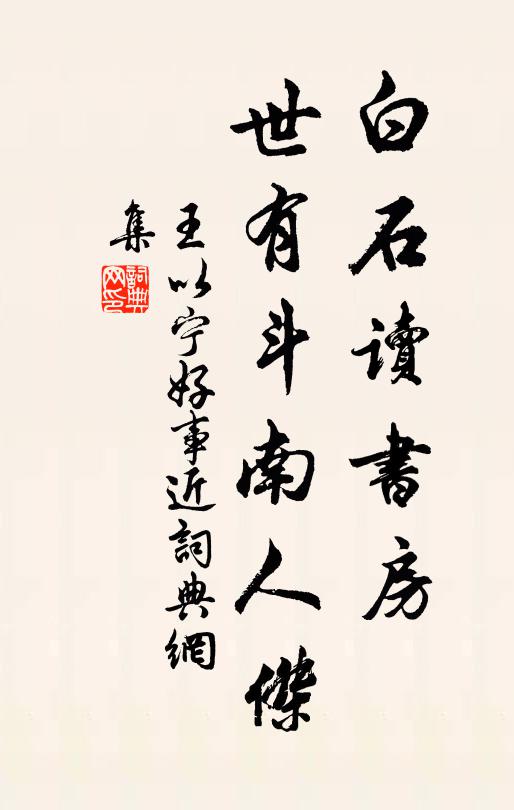 白石讀書房
世有斗南人傑
王以宁好事近詞典網
集
詞典
网印